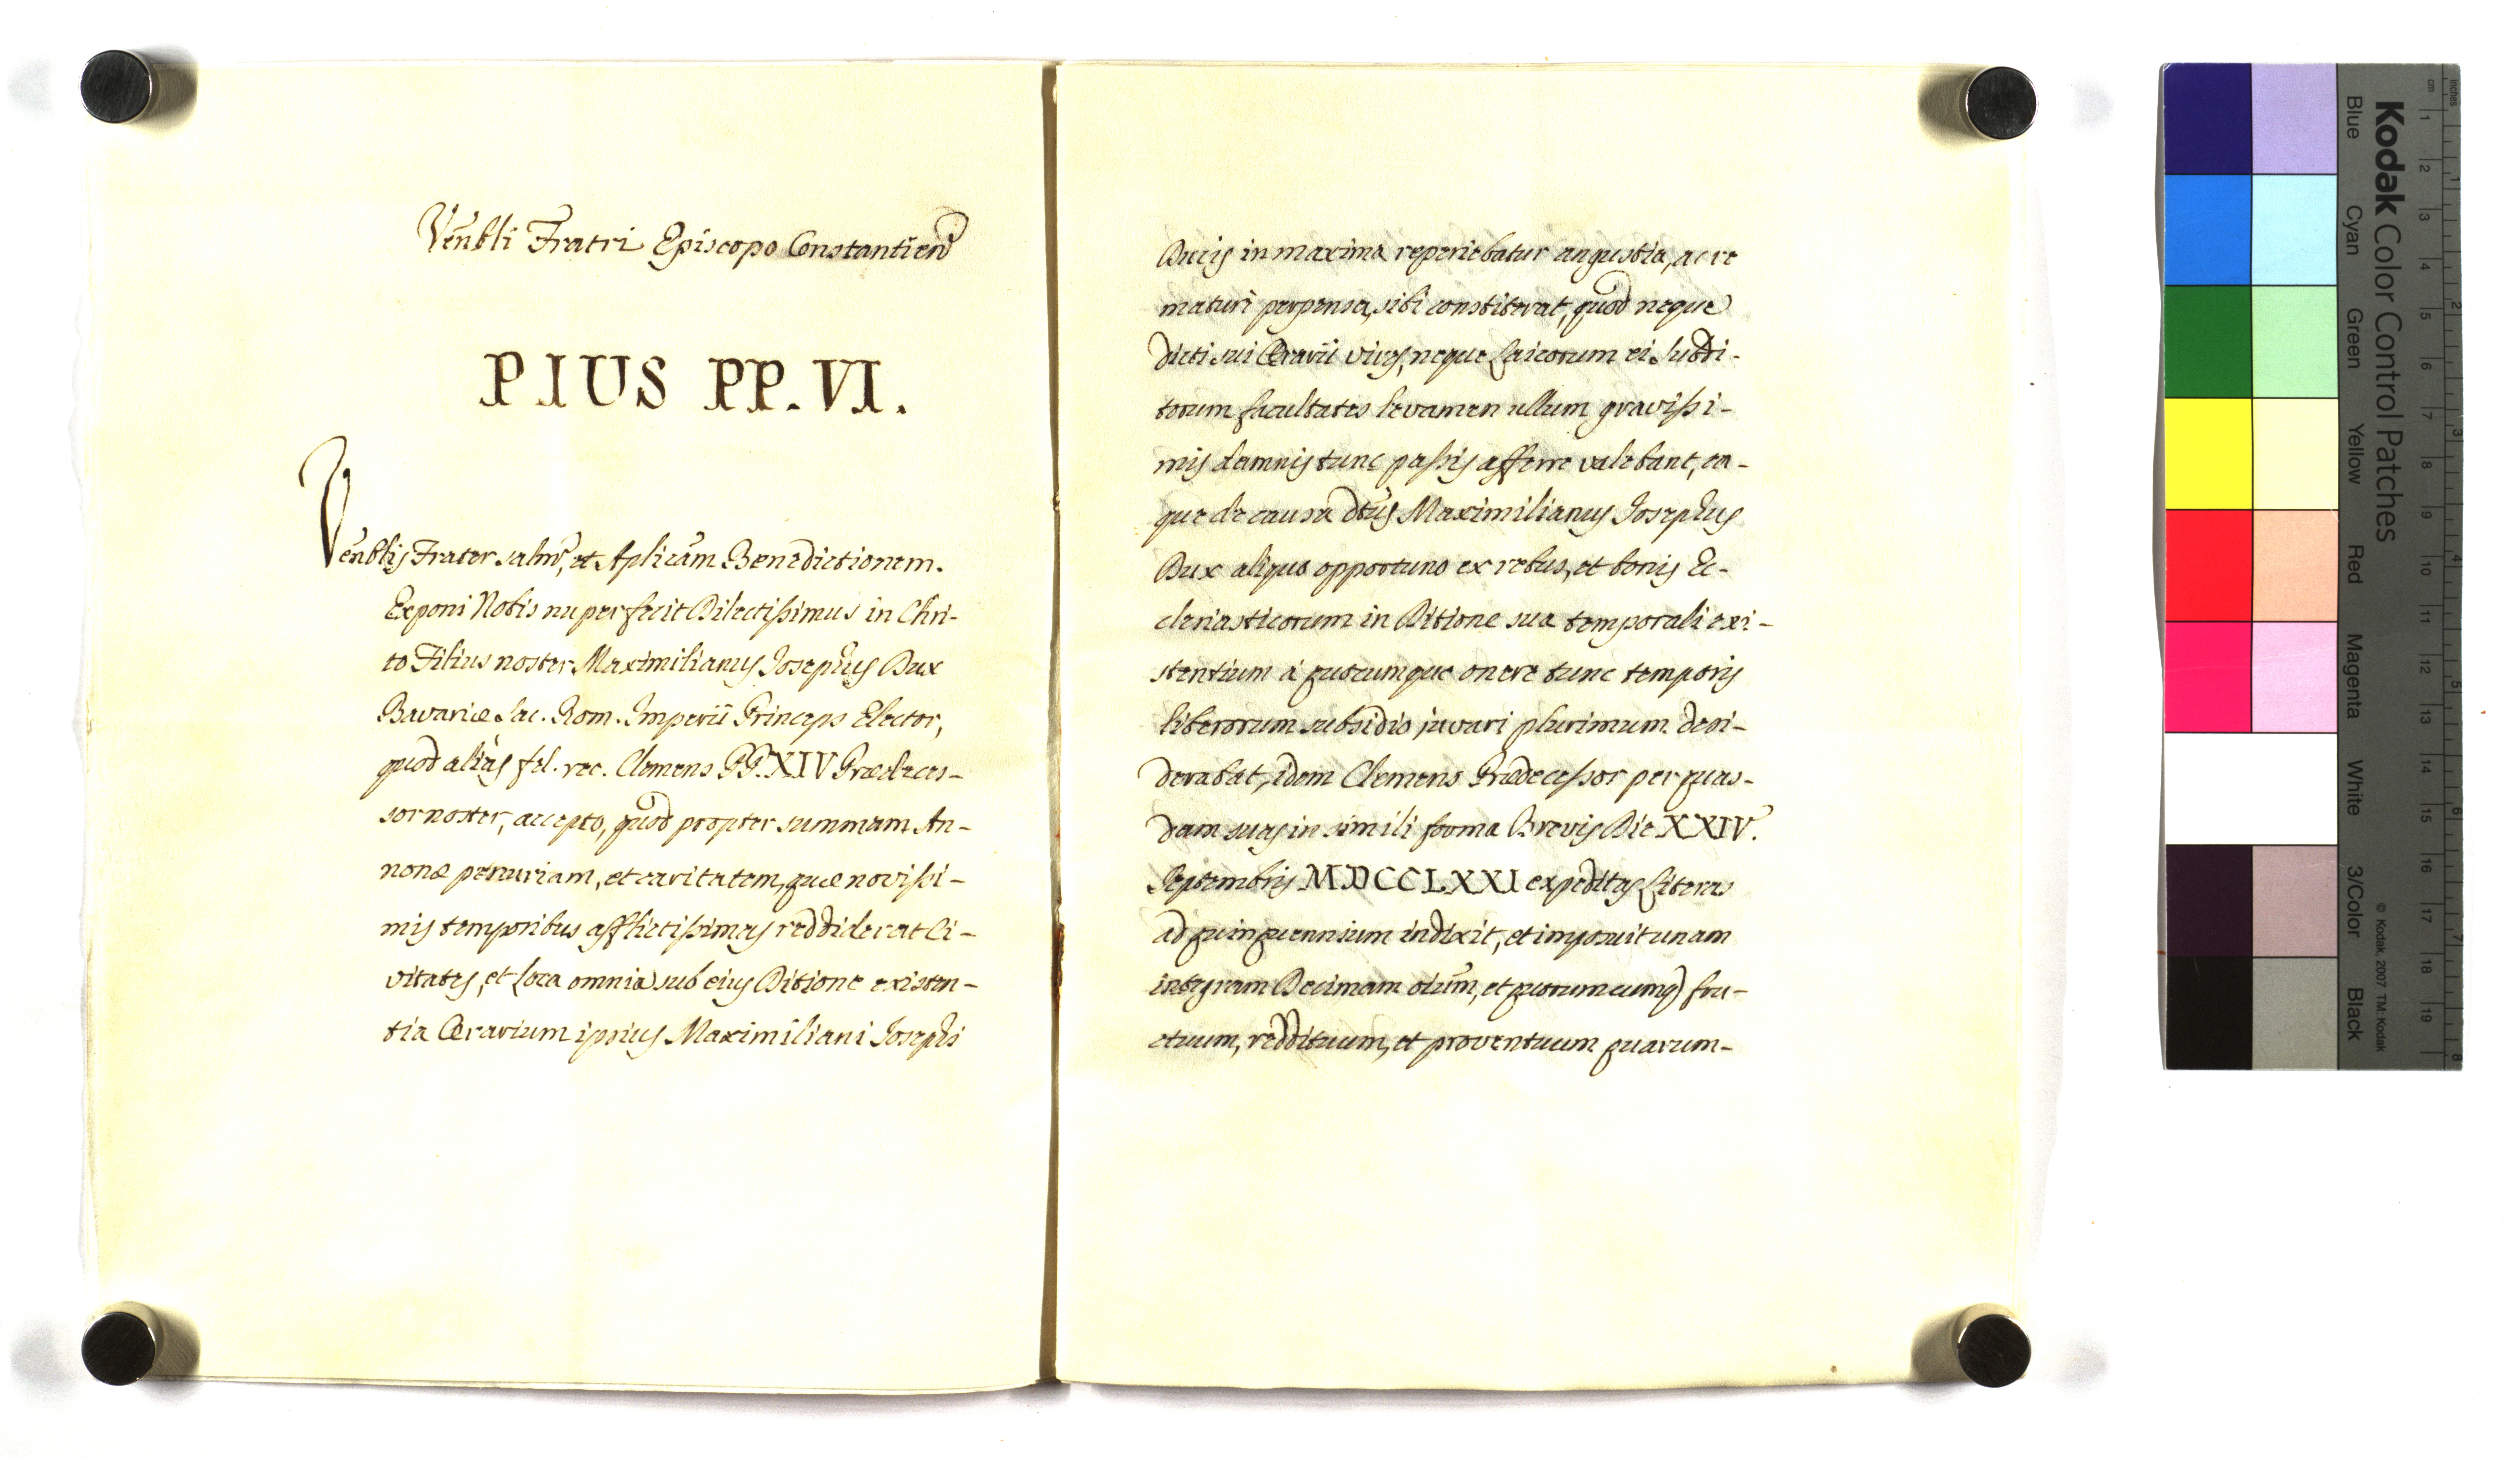 Venbli Fratri Episcopo Constantien
PIUS PP. VI.
Venblis Frater salm, et Aplicam Benedictionem.
Exponi Nobis nuper fecit Dilectissimus in Chri-
to Filius noster Maximilianus Josephus Dux
Bavariæ Sac. Rom. Imperii Princeps Elector,
quod aliàs fel. rec. Clemens PP. XIV Prædeces-
sor noster, accepto, quod propter summam An-
nonæ penuriam, et caritatem, quæ novissi-
mis temporibus afflictissimas reddiderat Ci-
vitates, et Loca omnia sub eius Ditione existen-
tia Ærarium ipsius Maximiliani Josephi
Ducis in maxima reperiebatur angustia, ac re
maturè perpensa, sibi constiterat, quod neque
dicti sui Ærarii vires, neque Laicorum ei Subdi-
torum facultates levamen ullum gravissi-
mis damnis tunc passis afferre valebant, ea-
que de causa dtus Maximilianus Josephus
Dux aliquo opportuno ex rebus, et bonis Ec-
clesiasticorum in Ditione sua temporali exi-
stentium à quocumque onere tunc temporis
liberorum subsidio juvari plurimum desi-
derabat, idem Clemens Prædecessor per quas-
dam suas in simili forma Brevis Die XXIV.
Septembris MDCCLXXI expeditas Literas
ad quinquennium indixit, et imposuit unam
integram Decimam oium, et quorumcumq) fru-
ctuum, reddituum, et proventuum quarum-
Kodak Color Control Patches
Blue
Cyan
Green
Yellow
Red
Magenta
White
3/Color
Black
© Kodak, 2007 TM: Kodak
cm
1
2
3
4
5
6
7
8
9
10
11
12
13
14
15
16
17
18
19
inches
1
2
3
4
5
6
7
8